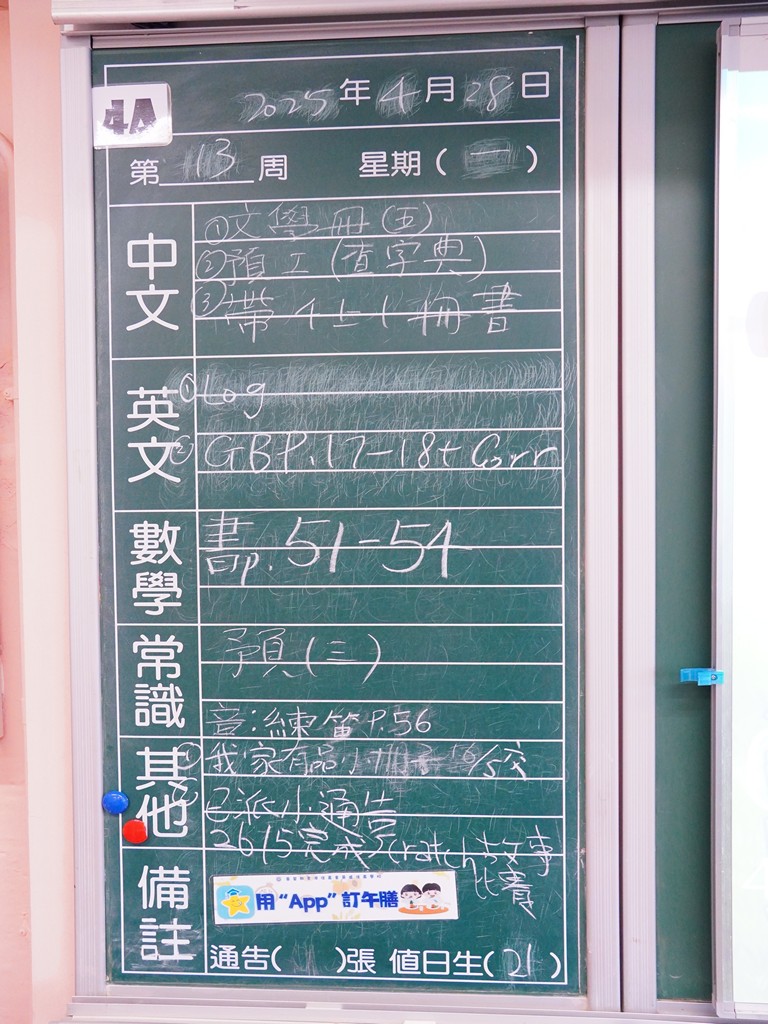 4A
2025年4月28日
第13周 星期(一)
中文
①文學冊(五)
②預工(查字典)
③帶 4上1 冊書
英文
①Log
②GB P.17-18+Corr
數學
書p.51-54
常識
預(三)
音:練笛P.56
其他
①我家有品小 16/5交
②已派小通告
26/5完成Scratch故事
比賽
備註
用“App”訂午膳
通告( )張 值日生(21)